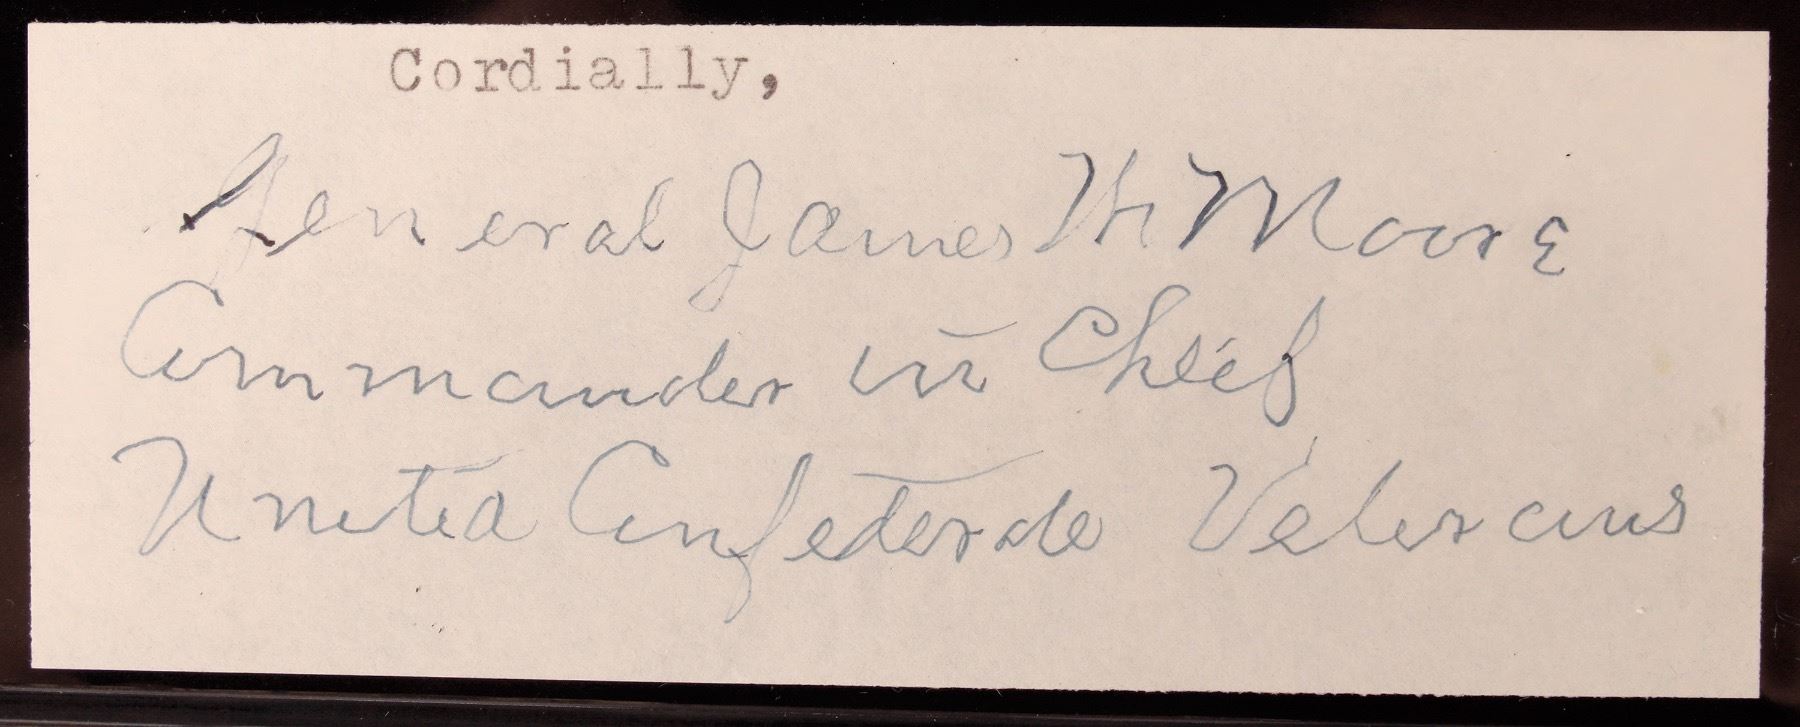 Cordially,
General James W Moore
Commander in Chief
United Confederate Veterans